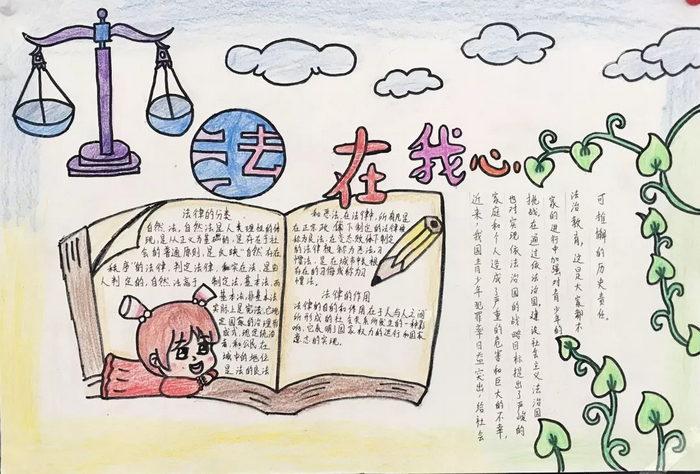 法在我心
法律的分类
自然法。自然法是人类理性的体
现，是从正义为基础的，是存在于社
会的普遍原则，是反映"自然存在
秩序"的法律，
人判定的，自然法高于
制定法，基本法，而
基本法，非基本法
实际上是宪法，它规
定国家的治理形
和公民在
域中的地位
是法的良法
和恶法，在法律中，所有凡是
在正常政体下制定的法律被
称为良法，在变态政体下制定
的法律被称为恶法，
存在的
憎法。
法律的作用
法律的目的和作用在于人与人之间
所形成的社会关系所发生的一种影
响，它表明了国家权力的进行和国家
意志的实现。
近来，我国青少年犯罪率日益突出，给社会
家庭和个人造成了严重的危害和巨大的不幸，
也对实现依法治国的战略目标提出了严峻的
挑战在通过依法治国，建设社会主义法治国
家的进行中加强对青少年的
法治教育，这是大家都不
可推懈的历史责任。